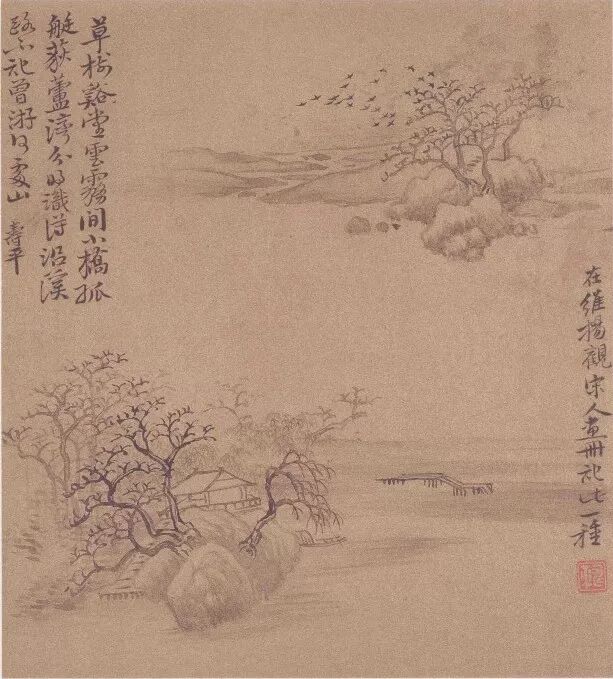 草樹谿堂雲霧間小橋孤
艇荻蘆灣分明識得沿溪
路不記曾游何處山 壽平
在維揚觀宋人畫冊記此一種